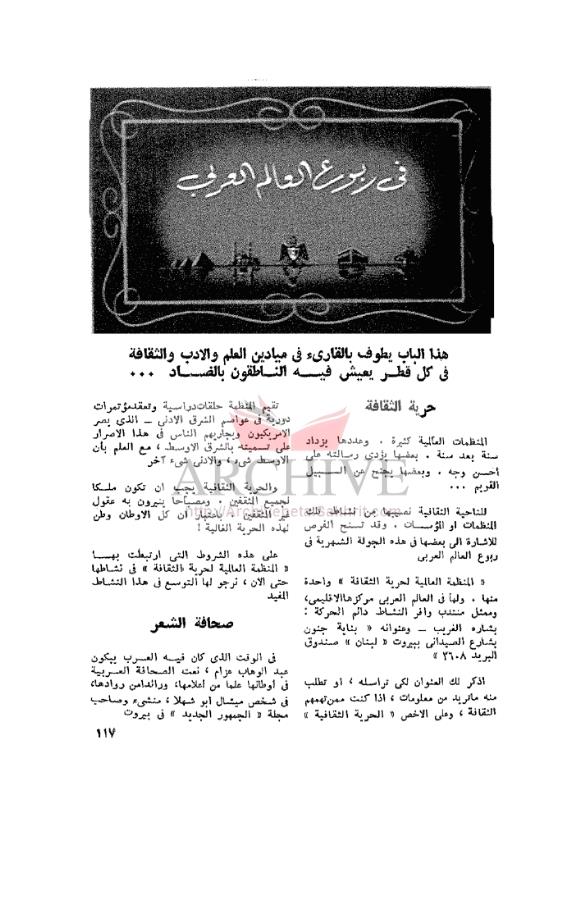 في ربوع العالم العربي
هذا الباب يطوف بالقارىء في ميادين العلم والادب والثقافة
في كل قطر يعيش فيه الناطقون بالضاد ...
حرية الثقافة
المنظمات العالمية كثيرة . وعددها يزداد
سنة بعد سنة . بعضها يؤدي رسالته على
أحسن وجه . وبعضها يجنح عن السبيل
القويم ...
للناحية الثقافية نصيبها من نشاط تلك
المنظمات او المؤسسات . وقد تسنح الفرص
للاشارة الى بعضها في هذه الجولة الشهرية في
ربوع العالم العربي
« المنظمة العالمية لحرية الثقافة » واحدة
منها . ولها في العالم العربي مركزها الاقليمي،
وممثل منتدب وافر النشاط دائم الحركة :
بشاره الغريب – وعنوانه « بناية جنون
بشارع الصيداني ببيروت « لبنان » صندوق
البريد ٣٦٠٨ »
اذكر لك العنوان لكي تراسله ، او تطلب
منه ماتريد من معلومات ، اذا كنت ممن تهمهم
الثقافة ، وعلى الاخص « الحرية الثقافية »
تقيم المنظمة حلقات دراسية وتعقد مؤتمرات
دورية في عواصم الشرق الادنى – الذي يصر
الامريكيون ويجاريهم الناس في هذا الاصرار
على تسميته بالشرق الاوسط ، مع العلم بأن
الاوسط شيء، والادنى شيء آخر
والحرية الثقافية يجب ان تكون ملكا
لجميع المثقفين . ومصباحا ينيرون به عقول
غير المثقفين . باعتبار أن كل الاوطان وطن
لهذه الحرية الغالية !
على هذه الشروط التي ارتبطت بها
« المنظمة العالمية لحرية الثقافة » في نشاطها
حتى الآن ، نرجو لها التوسع في هذا النشاط
المفيد
صحافة الشعر
في الوقت الذي كان فيه العرب يبكون
عبد الوهاب عزام ، نعت الصحافة العربية
في أوطانها علما من أعلامها، ورائدا من روادها،
في شخص ميشال ابو شهلا ، منشىء وصاحب
مجلة « الجمهور الجديد » في بيروت
١١٧
ARCHIVE